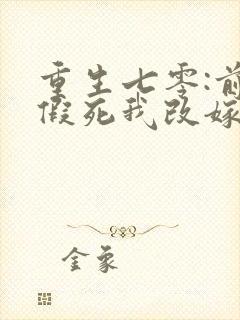 重生七零:前
假死我改嫁
金象